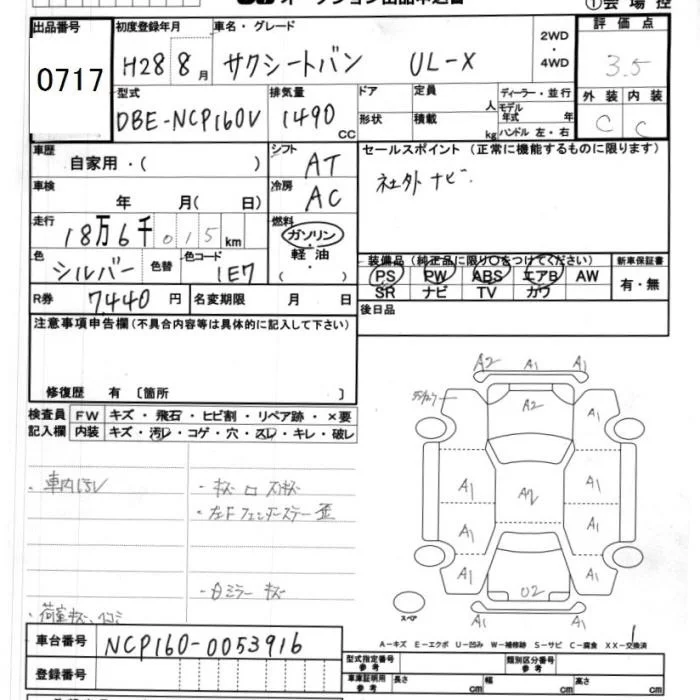 出品番号 初度登録年月 車名・グレード ①会場控
0717 H28 8月 サクシートバン UL-X 2WD・4WD 評価点 3.5
型式 排気量 ドア 定員 ディーラー・並行 外装 内装
DBE-NCP160V 1490 CC 形状 積載 人 kg モデル年式 年 ハンドル 左・右 C C
車歴 自家用・( ) シフト AT セールスポイント(正常に機能するものに限ります)
車検 年 月( 日) 冷房 AC 社外 ナビ.
走行 18万6千015km 燃料 ガソリン・軽油・( )
色 シルバー 色替 色コード 1E7 装備品(純正品に限り○をつけてください) 新車保証書
PS PW ABS エアB AW 有・無
R券 7440円 名変期限 月 日 SR ナビ TV カワ
注意事項申告欄(不具合内容等は具体的に記入して下さい) 後日品
修復歴 有 〔箇所 〕
検査員 FW キズ・飛石・ヒビ割・リペア跡・×要
記入欄 内装 キズ・汚レ・コゲ・穴・スレ・キレ・破レ
A2 A1 A1
A2 A1
・車内汚レ ・キズ
A1 A2 A1
・左Fフェンダーステー歪
A1 A1
・白ミラー キズ
A1 U2 A1
・荷室キズ、凹コミ スペア
A1
A-キズ E-エクボ U-凹み W-補修跡 S-サビ C-腐食 XX-交換済
車台番号 NCP160-0053916
登録番号
型式指定番号参考 類別区分番号参考
車庫証明用参考 長さ cm 幅 cm 高さ cm